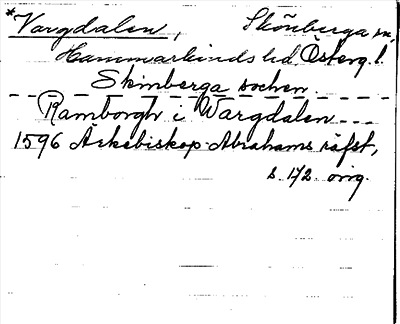 *Vargdalen, Skönberga sn,
Hammarkinds hd Österg. l.
Skinberga sochen
Ramborgh i Wargdalen
1596 Ärkebiskop Abrahams räfst,
s. 172. orig.